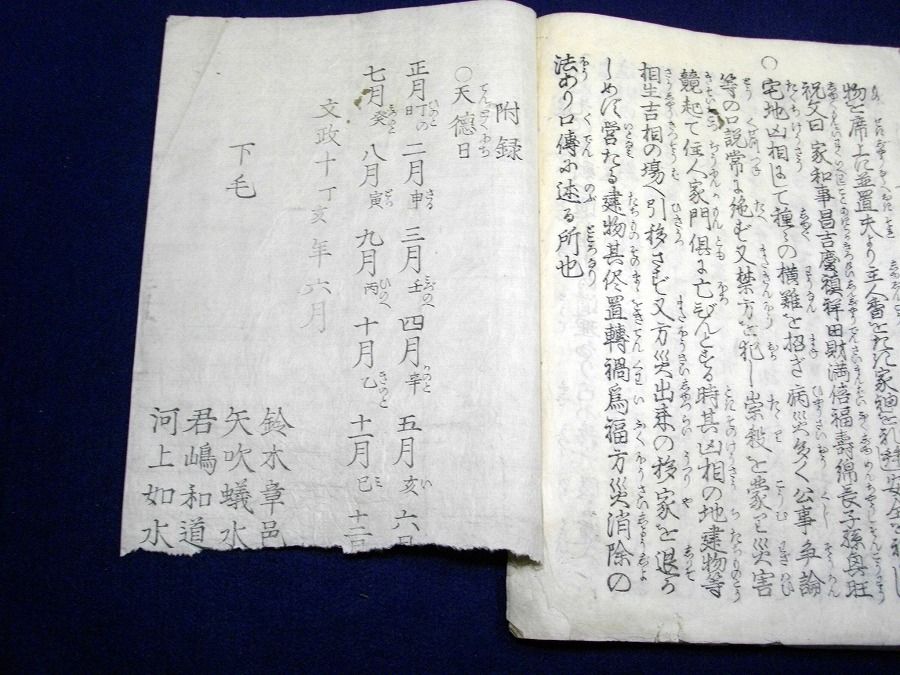 物を席上に並置夫より主人香をたき家神を礼拝安全を祈し
祝文曰家和事昌吉慶禎祥田財満倍福壽綿長子孫興旺
○宅地凶相にして種々の横難を招ぎ病災多く公事争論
等の口説常に絶ず又禁方を犯し崇殺を蒙り災害
競起て住人家門倶に亡びんとする時其凶相の地建物等
相生吉相の場へ引移さず又方災出来の移家を退か
しめず営たる建物其侭置轉禍爲福方災消除の
法あり口傳に述る所也
附録
○天德日
正月丁の日 二月申 三月壬 四月辛 五月亥 六月
七月癸 八月寅 九月丙 十月乙 十一月巳 十二
文政十丁亥年六月
下毛
鈴木章邑
矢吹蟻水
君嶋和道
河上如水